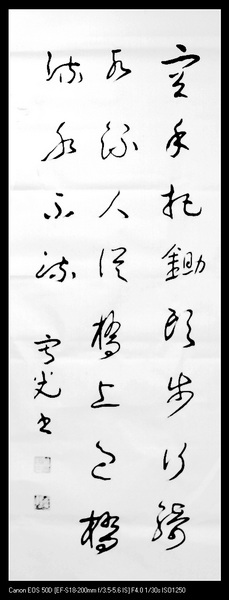 空手把鋤頭步行騎
水人從橋上過橋
流水不流
光書
Canon EOS 50D [EF-S18-200mm f/3.5-5.6 IS] F4.0 1/30s ISO1250